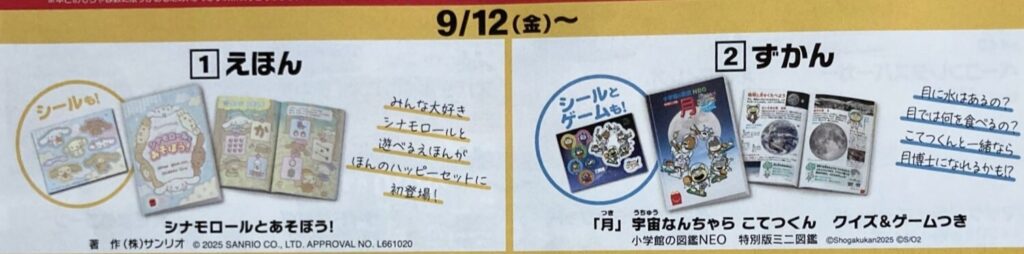 9/12(金)～
1 えほん
シールも!
みんな大好き
シナモロールと
遊べるえほんが
ほんのハッピーセットに
初登場!
シナモロールとあそぼう!
著 作(株)サンリオ © 2025 SANRIO CO., LTD. APPROVAL NO. L661020
2 ずかん
シールと
ゲームも!
小学館の図鑑NEO
月
月に水はあるの?
月では何を食べるの?
こてつくんと一緒なら
月博士になれるかも!?
つき うちゅう
「月」宇宙なんちゃら こてつくん クイズ&ゲームつき
小学館の図鑑NEO 特別版ミニ図鑑 ©Shogakukan2025 ©S/O2